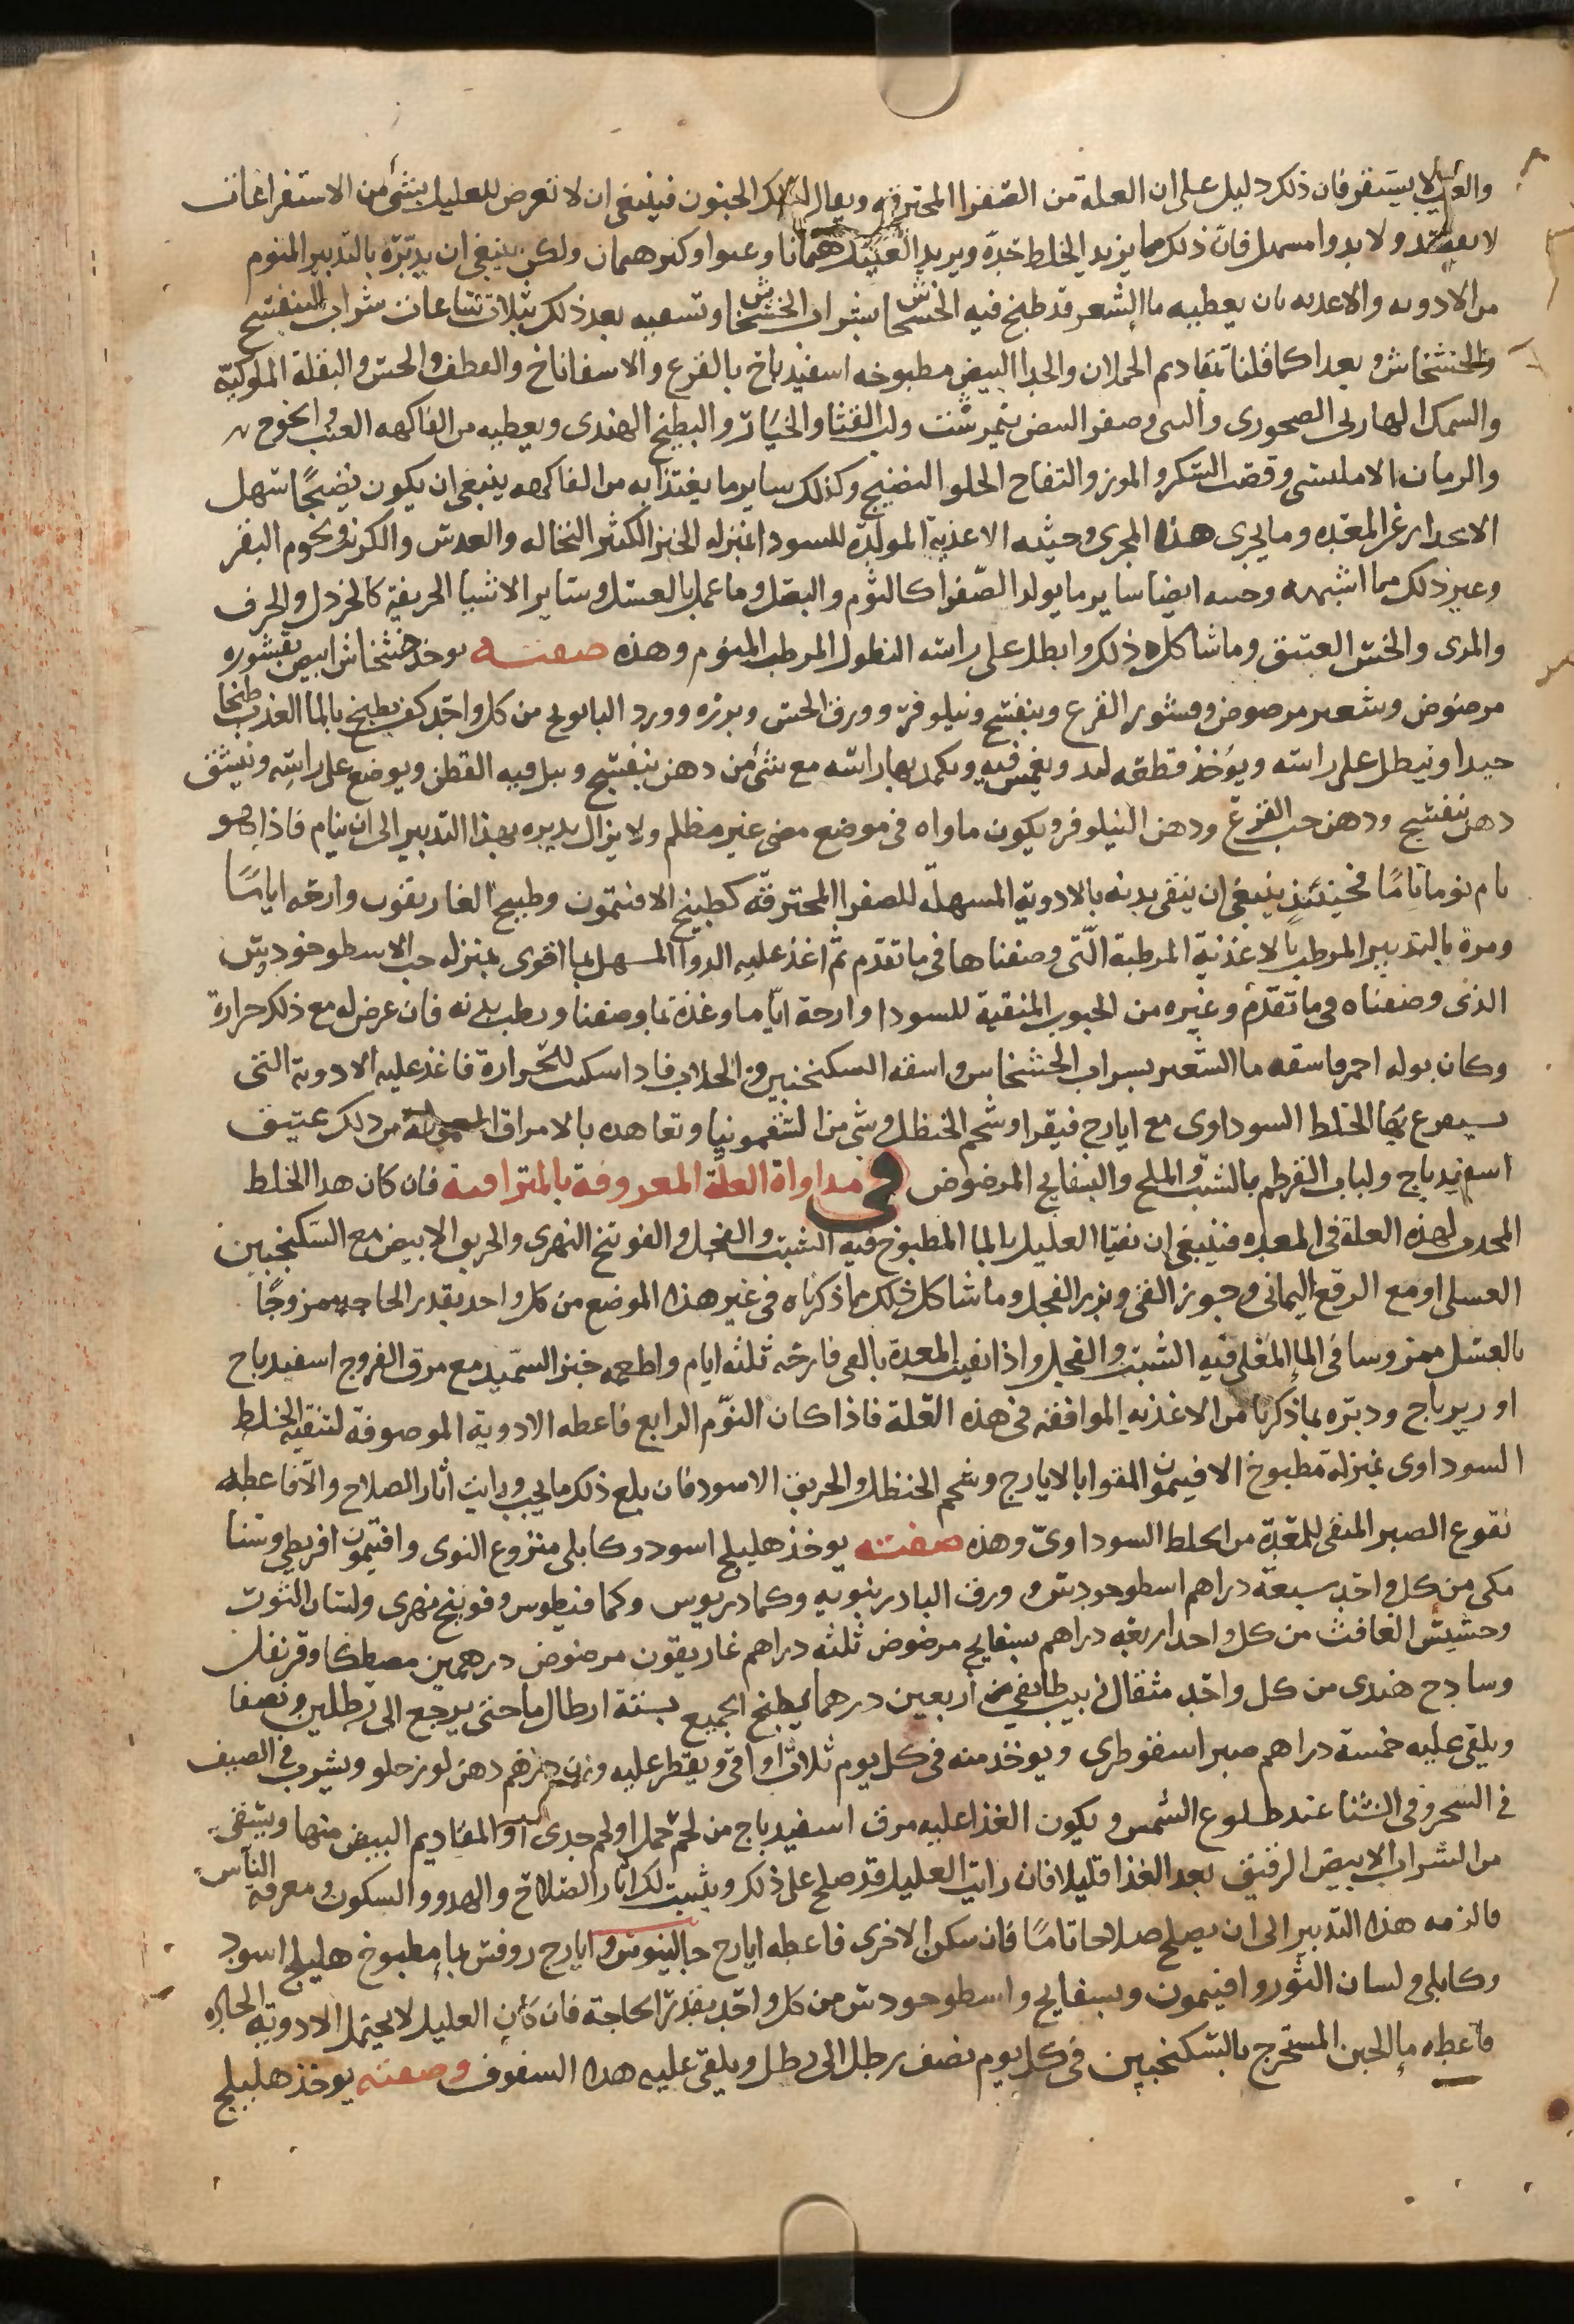 والعليل لا يستقر فان ذلك دليل على ان العلة من الصفرا المحترقه ويقال لذلك الجنون فينبغى ان لا تعرض للعليل بشئ من الاستفراغات
لا بفصد ولا بدوا مسهل فان ذلك مما يزيد الخلط حدة ويزيد العليل هيمانا
ولكن ينبغى ان يدبره بالتدبير المنوم
من الادويه والاغديه بان يعطيه ما الشعير قد طبخ فيه الخشخاش او بشراب الخشخاش وتسقيه بعد ذلك بثلاث ساعات شراب البنفسج
والخشخاش وبعدا كما قلنا بمقاديم الحملان والجدا البيض مطبوخه اسفيدباخ بالقرع والاسفاناخ والقطف والخس والبقلة الملوكيه
والسمك الهاربى الصخورى وصفر البيض بنميرشت ولب القثا والخيار والبطيخ الهندى ويعطيه من الفاكهه العنب والخوخ
والرمان الامليسى وقصب السكر والموز والتفاح الحلو النضيج وكذلك ساير ما يغتذا به من الفاكهه ينبغى ان يكون نضيجًا سهل
الانحدار عن المعده وما يجرى هذا المجرى وجنبه الاغذية المولدة للسودا بمنزله الخبز الكثير النخاله والعدس والكرنب ولحوم البقر
وغير ذلك مما اشبهه وجنبه ايضا ساير ما يولد الصفرا كالثوم والبصل وما عمل بالعسل وساير الاشيا الحريفة كالخردل والحرف
والمرى والجبن العتيق وما شاكل ذلك وانطل على راسه النطول المرطب المنوم وهذه صفته يوخذ خشخاش ابيض بقشوره
مرضوض وشعير مرضوض وقشور القرع وبنفسج ونيلوفر وورق الخس وبزره وورد البابونج من كل واحد كف يطبخ بالما العذب طبخا
جيدا وينطل على راسه ويؤخذ قطعه لبد ويغمس فيه ويكمد بها راسه مع شئ من دهن بنفسج ويبل فيه القطن ويوضع على راسه وتنشق
دهن بنفسج ودهن حب القرع ودهن النيلوفر ويكون ماواه فى موضع مضى غير مظلم ولا يزال يدبره بهذا التدبير الى ان ينام فاذا هو
نام نوما تامًا فحينئذ ينبغى ان ينقى بدنه بالادوية المسهلة للصفرا المحترقة كطبيخ الافتيمون وطبيخ الغاريقون وارحه اياما
ومره بالتدبير المرطب بالاغذية المرطبة التى وصفناها فى ما تقدم ثم اعد عليه الدوا المسهل بما اقوى بمنزله حب الاسطوخودس
الذى وصفناه فى ما تقدم وغيره من الحبوب المنقية للسودا وارحه اياما وغذه بما وصفنا ورطب بدنه فان عرض له مع ذلك حرارة
وكان بوله احمر فاسقه ما الشعير بشراب الخشخاش واسقه السكنجبين والجلاب فاذا سكنت الحرارة فاعد عليه الادوية التى
يستفرغ بها الخلط السوداوى مع ايارج فيقرا وشحم الحنظل وشى من السقمونيا وتعاهده بالامراق المعموله من ديك عتيق
اسفيدباج ولباب القرطم بالشبث والملح والبسفايج المرضوض فى مداواة العلة المعروفة بالمتراقية فان كان هدا الخلط
المحدث لهذه العلة فى المعده فينبغى ان تقيا العليل بالما المطبوخ فيه الشبت والفجل والفوتنج النهرى والخربق الابيض مع السكنجبين
العسلى او مع الرقع اليمانى وجوز القى وبزر الفجل وما شاكل ذلك مما ذكرناه فى غير هذا الموضع من كل واحد بقدر الحاجه ممزوجًا
بالعسل ممروسا فى الما المغلى فيه الشبت والفجل واذا نقيت المعدة بالقى فارحه ثلثه ايام واطعمه خبز السميد مع مرق الفروج اسفيدباج
او زيرباج ودبره بما ذكرنا من الاغذيه الموافقه فى هذه العلة فاذا كان اليوم الرابع فاعطه الادوية الموصوفة لتنقيه الخلط
السوداوى بمنزلة مطبوخ الافتيمون المقوا بالايارج وشحم الحنظل والخربق الاسود فان بلغ ذلك ما يجب ورايت اثار الصلاح والا فاعطه
نقوع الصبر المنقى للمعدة من الخلط السوداوى وهذه صفته يوخذ هليلج اسود وكابلى منزوع النوى وافتيمون اقريطى وسنا
مكى من كل واحد سبعة دراهم اسطوخودس وورق البادرنبويه وكمادريوس وكمافيطوس وفوتنج نهرى ولسان الثور
وحشيش الغافث من كل واحد اربعه دراهم بسفايج مرضوض ثلثه دراهم غاريقون مرضوض درهمين مصطكا وقرنفل
وساذج هندى من كل واحد مثقال زبيب طايفى اربعين درهما يطبخ الجميع بستة ارطال ما حتى يرجع الى رطلين ونصفا
ويلقى عليه خمسة دراهم صبر اسقوطرى ويوخذ منه فى كل يوم ثلاث اواقى ويقطر عليه وزن درهم دهن لوز حلو ويشرب فى الصيف
فى السحر وفى الشتا عند طلوع الشمس ويكون الغذا عليه مرق اسفيدباج من لحم حمل او لحم جدى او المقاديم البيض منها ويسقى
من الشراب الابيض الرقيق بعد الغذا قليلا فان رايت العليل قد صلح على ذلك ويثبت لك اثار الصلاح والهدوو والسكون ومعرفة الناس
فالزمه هذا التدبير الى ان يصلح صلاحا تامًا فان سكن والاخرى فاعطه ايارج جالينوس او ايارج روفس بما مطبوخ هليلج اسود
وكابلى ولسان الثور وافتيمون وبسفايج واسطوخودس من كل واحد بقدر الحاجة فان كان العليل لا يحتمل الادوية الحاره
فاعطه ما الجبن المستخرج بالسكنجبين فى كل يوم نصف رطل الى رطل ويلقى عليه هدا السفوف وصفته يوخذ هليلج